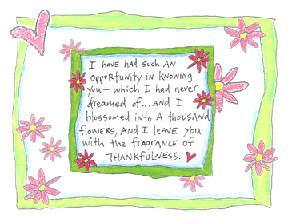 I HAVE HAD SUCH AN
OPPORTUNITY IN KNOWING
YOU— WHICH I HAD NEVER
DREAMED OF...AND I
BLOSSOMED INTO A THOUSAND
FLOWERS, AND I LEAVE YOU
WITH THE FRAGRANCE OF
THANKFULNESS.